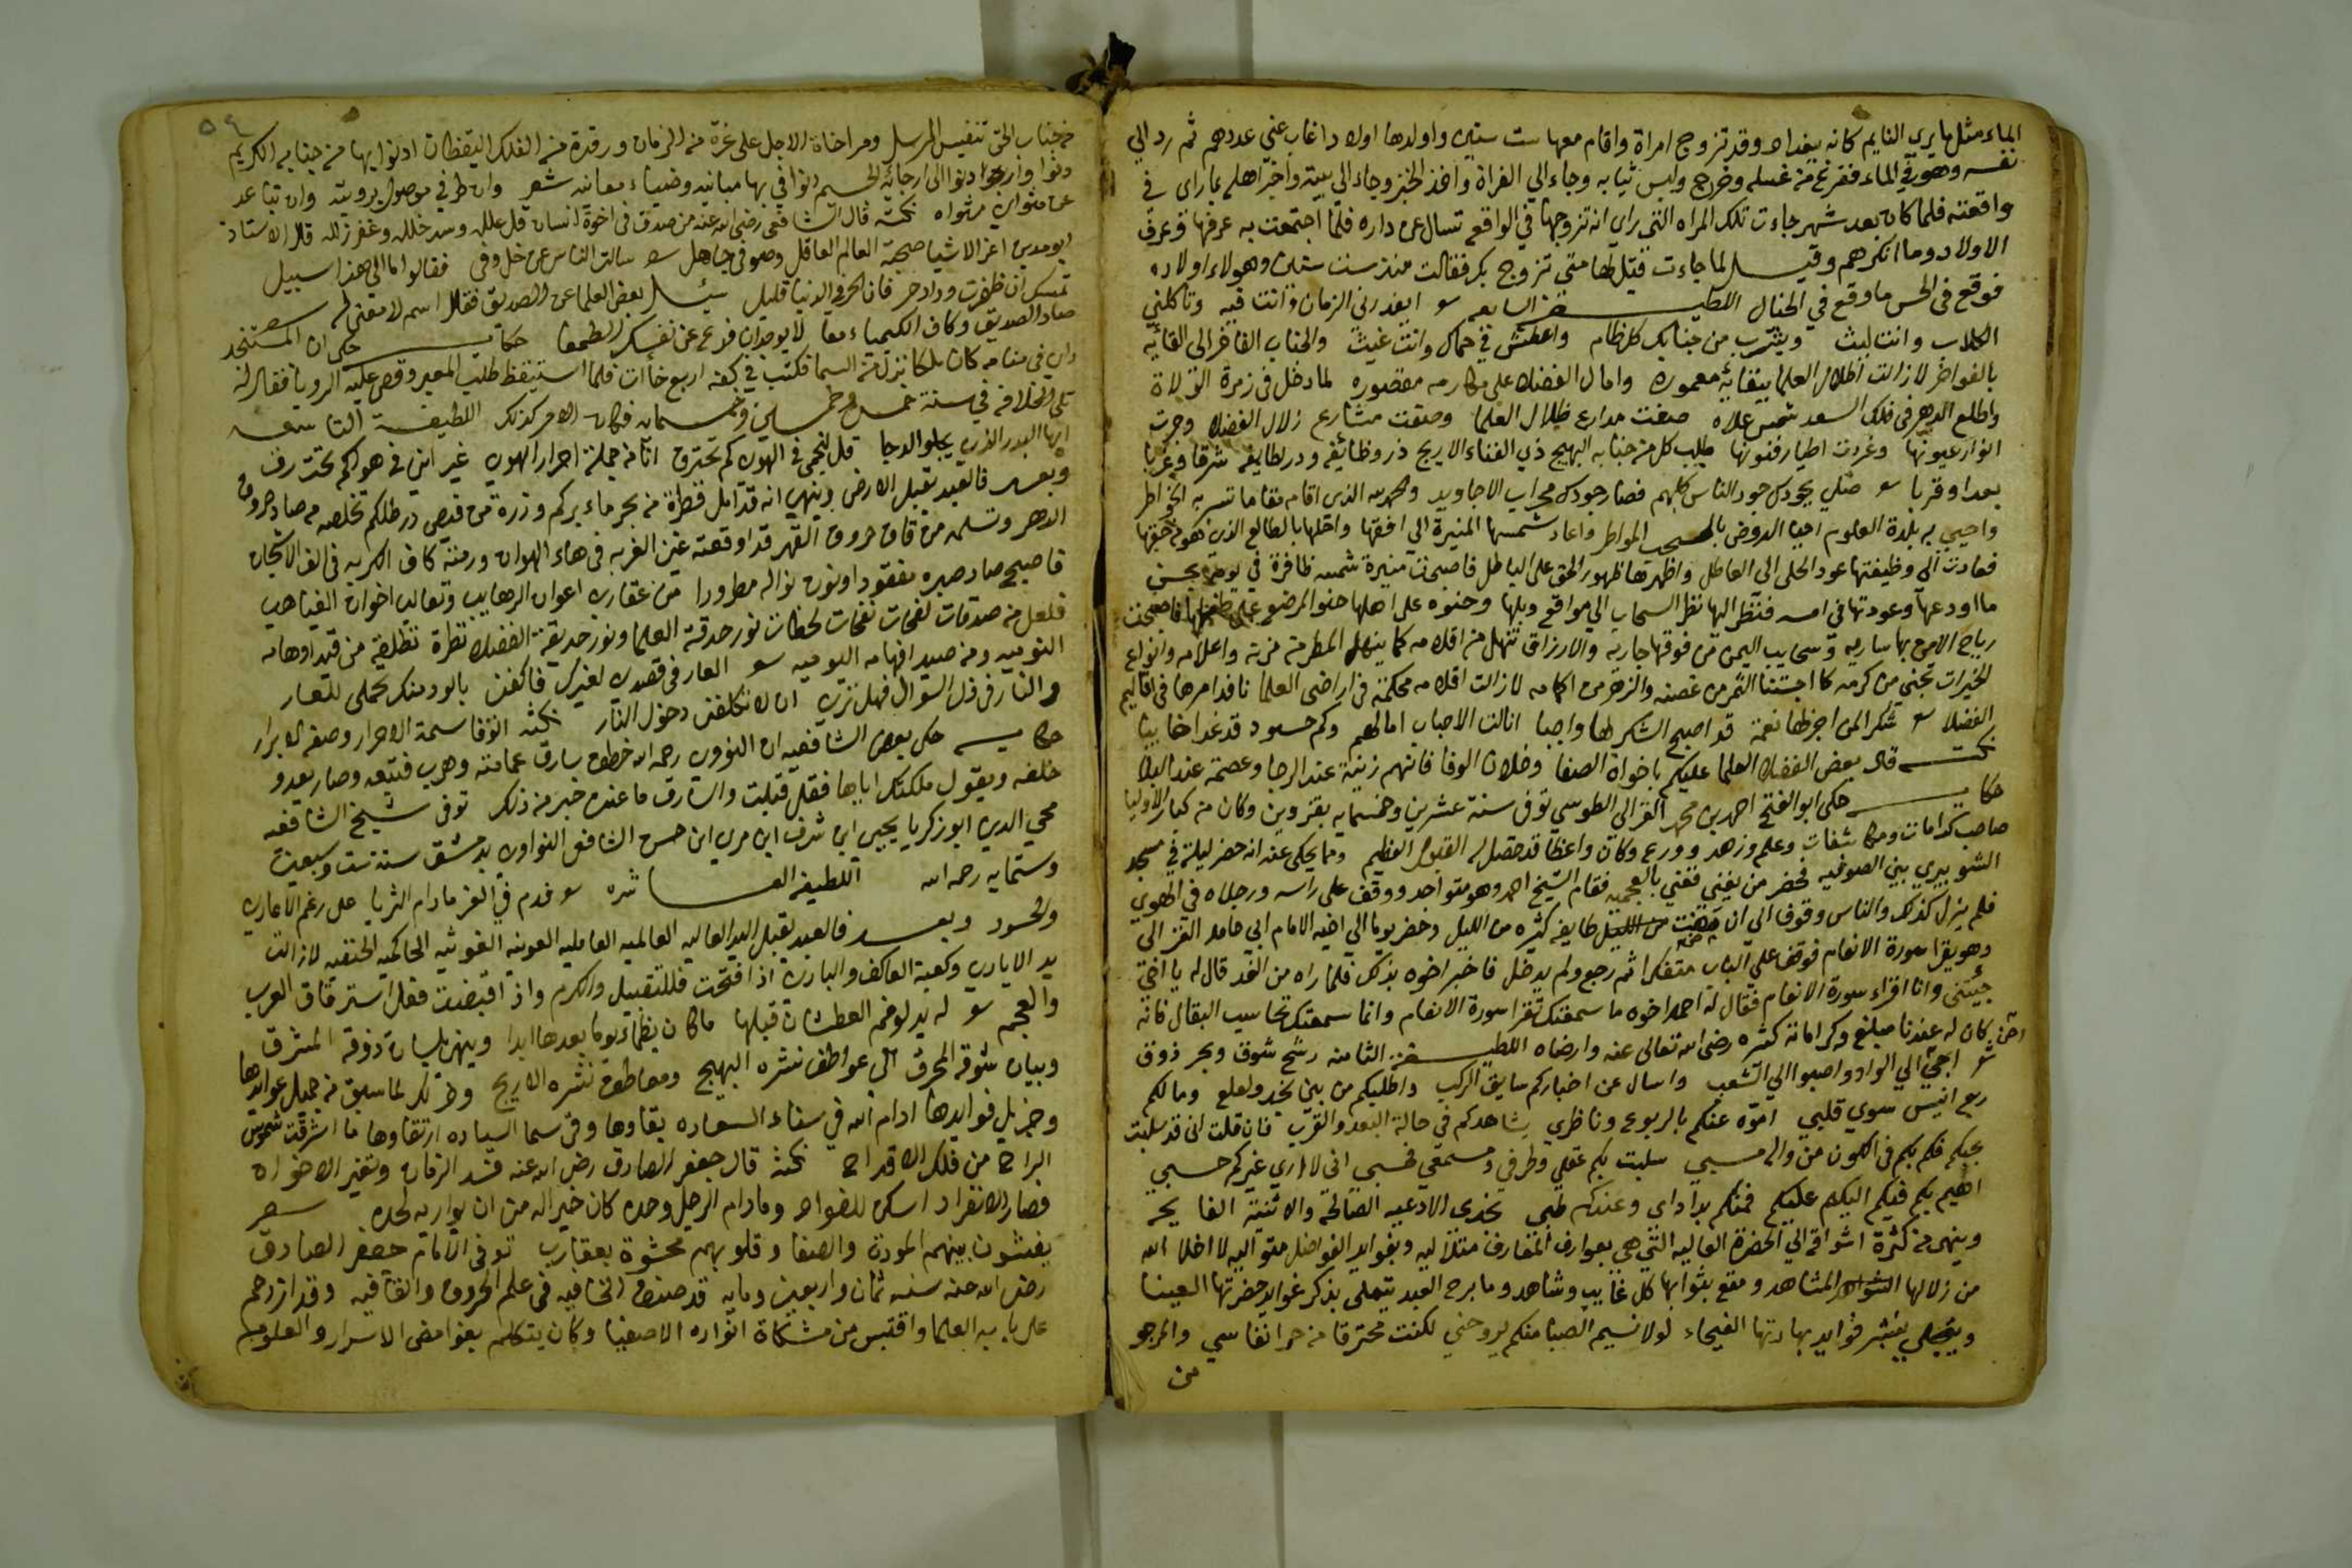 الماء مثل ما يرى النايم كانه ببغداد وقد تزوج امراة واقام معها ست سنين واولدها اولادا غاب عني عددهم ثم رد الي
نفسه وهو في الماء ففرغ من غسله وخرج ولبس ثيابه وجاء الي الفراة واخذ الخبز وجاء الي بيته واخبر اهله بما راى في
واقعته فلما كان بعد شهر جاءت تلك المراه التي راى انه تزوجها في الواقعه تسال عن داره فلما اجتمعت به عرفها وعرف
الاولاد وما انكرهم وقيل لما جاءت قيل لها متى تزوج بك فقالت منذ ست سنين وهولاء اولاده
فوقع في الحس ما وقع في الخيال اللطيفة السابعه ايغدرني الزمان وانت فيه وتاكلني
الكلاب وانت ليث ويشرب من جنابك كل ظام واعطش في حماك وانت غيث والجناب الفاخر الي القايه
بالفواخر لا زالت اطلال العلما ببقايه معموره وامال الفضلا علي مكارمه مقصوره لما دخل في زمرة الولاة
واطلع الدهر في فلك السعد شمس علاه صفت مدارع ظلال العلما وصفت مشارع زلال الفضلا وجرت
انوار عيونها وغردت اطيار فنونها طلب كل من جنابه البهيج ذي الفناء الاريج در وظايفه ودر لطايفه شرقا وغربا
بعدا وقربا صلي بجودك جود الناس كلهم فصار جودك محراب الاجاويد والحمد لله الذي اقام مقاما تسر به الخواطر
واحيي به بلدة العلوم احيا الروض بالسحب المواطر واعاد شمسها المنيرة الي افقها واحلها بالطالع الذي هو من حقها
فعادت الى وظيفتها عود الحلى الى العاطل واظهرتها ظهور الحق على الباطل فاصبحت منيرة شمسه ظافرة في يومه بحسن
ما اودعها وعودتها في امسه فنظر اليها نظر السحاب الي مواقع وبلها وحنوه على اهلها حنو المرضع على طفلها فاصبحت
رياح الامن بها ساريه وسحايب اليمن من فوقها جاريه والارزاق تنهل من اقلامه كما ينهل المطر من مزنه واعلامه وانواع
الخيرات تجني من كرمه كما اجتنينا الثمر من غصنه والزهر من اكمامه لا زالت اقلامه محكمة في اراضي العلما نافدا امرها في اقاليم
الفضلا شكرا لمن اجزلها نعمة قد اصبح الشكر لها واجبا انالت الاحباب امالهم وكم حسود قد غدا خايبا
نكته قال بعض الفضلا العلما عليكم باخوان الصفا وخلان الوفا فانهم زينة عند الرجا وعصمة عند البلا
حكايه حكى ابو الفتح احمد بن محمد الغزالي الطوسي توفى سنة عشرين وخمسمايه بقزوين وكان من كبار الاوليا
صاحب كرامات ومكاشفات وعلم وزهد وورع وكان واعظا قد حصل له القبول العظيم ومما يحكى عنه انه حضر ليلة في مسجد
الشويري بين الصوفيه فحضر من يغني فغني بالعجميه فقام الشيخ احمد وهو متواجد ووقف على راسه ورجلاه في الهوي
فلم يزل كذلك والناس وقوف الى ان مضت من الليل طايفه كثيره من الليل وحضر يوما الي اخيه الامام ابي حامد الغزالي
وهو يقرا سورة الانعام فوقف علي الباب متفكرا ثم رجع ولم يدخل فاخبر اخوه بذلك فلما راه من الغد قال له يا اخي
جيتني وانا اقراء سورة الانعام فقال له احمد اخوه ما سمعتك تقرا سورة الانعام وانما سمعتك تحاسب البقال فانه
كان له عندنا مبلغ وكراماته كثيره رضى الله تعالى عنه وارضاه اللطيفة الثامنه رشح شوق وبحر ذوق
شعر احن الي الوادي واصبوا الي الشعب واسال عن اخباركم سايق الركب واطلبكم من بين نجد ولعلع وما لكم
ربع انيس سوي قلبي اموه عنكم بالربوع وناظري يشاهدكم في حالة البعد والقرب فان قلت اني قد سلبت
بحبكم فكم بكم في الكون من واله مسبي سلبت بكم عقلي وطرفي ومسمعي فحسبي اني لا اري غيركم حسبي
اهيم بكم فيكم اليكم عليكم فمنكم بدا داى وعندكم طبي نخدى الادعيه الصالحة والاثنية الفايحه
وينهى من كثرة اشواقه الي الحضرة العاليه التي هي بعوارف المعارف متلاليه وبفوايد الفواضل متواليه لا اخلا الله
من زلالها المشاهد ومتع بثوابها كل غايب وشاهد وما برح العبد يتملى بذكر عوايد حضرتها العينا
ويتجلي بنشر فوايد بهادتها الفيحاء لولا نسيم الصبا منكم يروحني لكنت محترقا من حر انفاسي والمرجو
من
٥٩
من جناب الحق تنفيس المرسل ومراخاة الاجل على غرة من الزمان ورقدة من الفلك اليقظان
عن مثواى مثواه نكته قال الشافعى رضى الله عنه من صدق في اخوة انسان قبل علله وسد خلله وغفر زلله قال الاستاذ
ابو مدين اعز الاشيا صحبة العالم العاقل وصوفي جاهل سالت الناس عن خل وفى فقالوا ما الى هذا سبيل
تمسك ان ظفرت بود حر فان الحر في الدنيا قليل سيل بعض العلما عن الصديق فقال اسم لا معنى له شعر
صاد الصديق وكاف الكيمياء معا لا يوجدان فدع عن نفسك الطمعا حكايه حكى ان المستنجد
راى في منامه كان ملكا نزل من السما فكتب في كفه اربع خاات فلما استيقظ طلب المعبر وقص عليه الرويا فقال له
تلى الخلافه في سنة خمس وخمسين وخمسمايه فكان الامر كذلك اللطيفة التاسعه
ايها البدر الذي يجلو الدجا قل لنجمي في الهوى كم تحترق انا من جملة احرار الهوى غير اني في هواكم تحت رق
وبعد فالعبد يقبل الارض وينهي انه قد امل قطرة من بحر ماء بركم وذرة من فيض در ظلكم تخلصه من صاد صروف
الدهر وتسلمه من قاف حروف القهر قد اوقعته غين الغربه في هاء الهوان ورمته كاف الكربه في الف الاشجان
فاصبح صاد صبره مفقودا ونون نواله مطرودا من عقارب اعوان الرهايب وثعالب اخوان الغياهب
فلعل من صدقات لفحات نفحات لحظات نور حدقة العلما ونور حديقة الفضلا نظرة تطلقه من قيد اوهامه
النوميه ومن صيد افهامه اليوميه العار في قصدى لغيرك فاكفني بالود منك تحملي للعار
والنار في ذل السوال فهل ترى ان لا تكلفني دخول النار نكته الوفا سمة الاحرار وصفة الابرار
حكايه حكى بعض الشافعيه ان النووى رحمه الله خطف سارق عمامته وهرب فتبعه وصار يعدو
خلفه ويقول ملكتك اياها فقل قبلت والسارق ما عنده خبر من ذلك توفى شيخ الشافعيه
محي الدين ابو زكريا يحيي ابن شرف ابن مري ابن حسن الشافعى النواوى بدمشق سنة ست وسبعين
وستمايه رحمه الله اللطيفة العاشره فدم في العز ما دام الثريا على رغم الاعادي
والحسود وبعد فالعبد يقبل اليد العاليه العالميه العامليه العونيه الغوثيه الحاكميه الحنفيه لا زالت
يد الايادي وكعبة العاكف والبادى اذا فتحت فللتقبيل والكرم واذا قبضت فعلى استرقاق العرب
والعجم له يد لو فم العطشان قبلها ما كان يظماء يوما بعدها ابدا وينهي بلسان ذوقه المشرق
وبيان شوقه المحرق الى عواطف نشره البهيج ومعاطف نشره الاريج وذلك لما سبق من جميل عوايدها
وجزيل فوايدها ادام الله في سماء السعاده بقاوها وفي سما السياده ارتقاوها ما اشرقت شموس
الراح من فلك الاقداح نكتة قال جعفر الصادق رضى الله عنه فسد الزمان وتغير الاخوان
فصار الانفراد اسكن للفواد وما دام الرجل وحده كان خيرا له من ان يواريه لحده شعر
يفشون بينهم المودة والصفا وقلوبهم محشوة بعقارب توفى الامام جعفر الصادق
رضى الله عنه سنة ثمان واربعين ومايه قد صنف الخافيه في علم الحروف والقافيه وقد ازدحم
على بابه العلما واقتبس من مشكاة انواره الاصفيا وكان يتكلم بغوامض الاسرار والعلوم